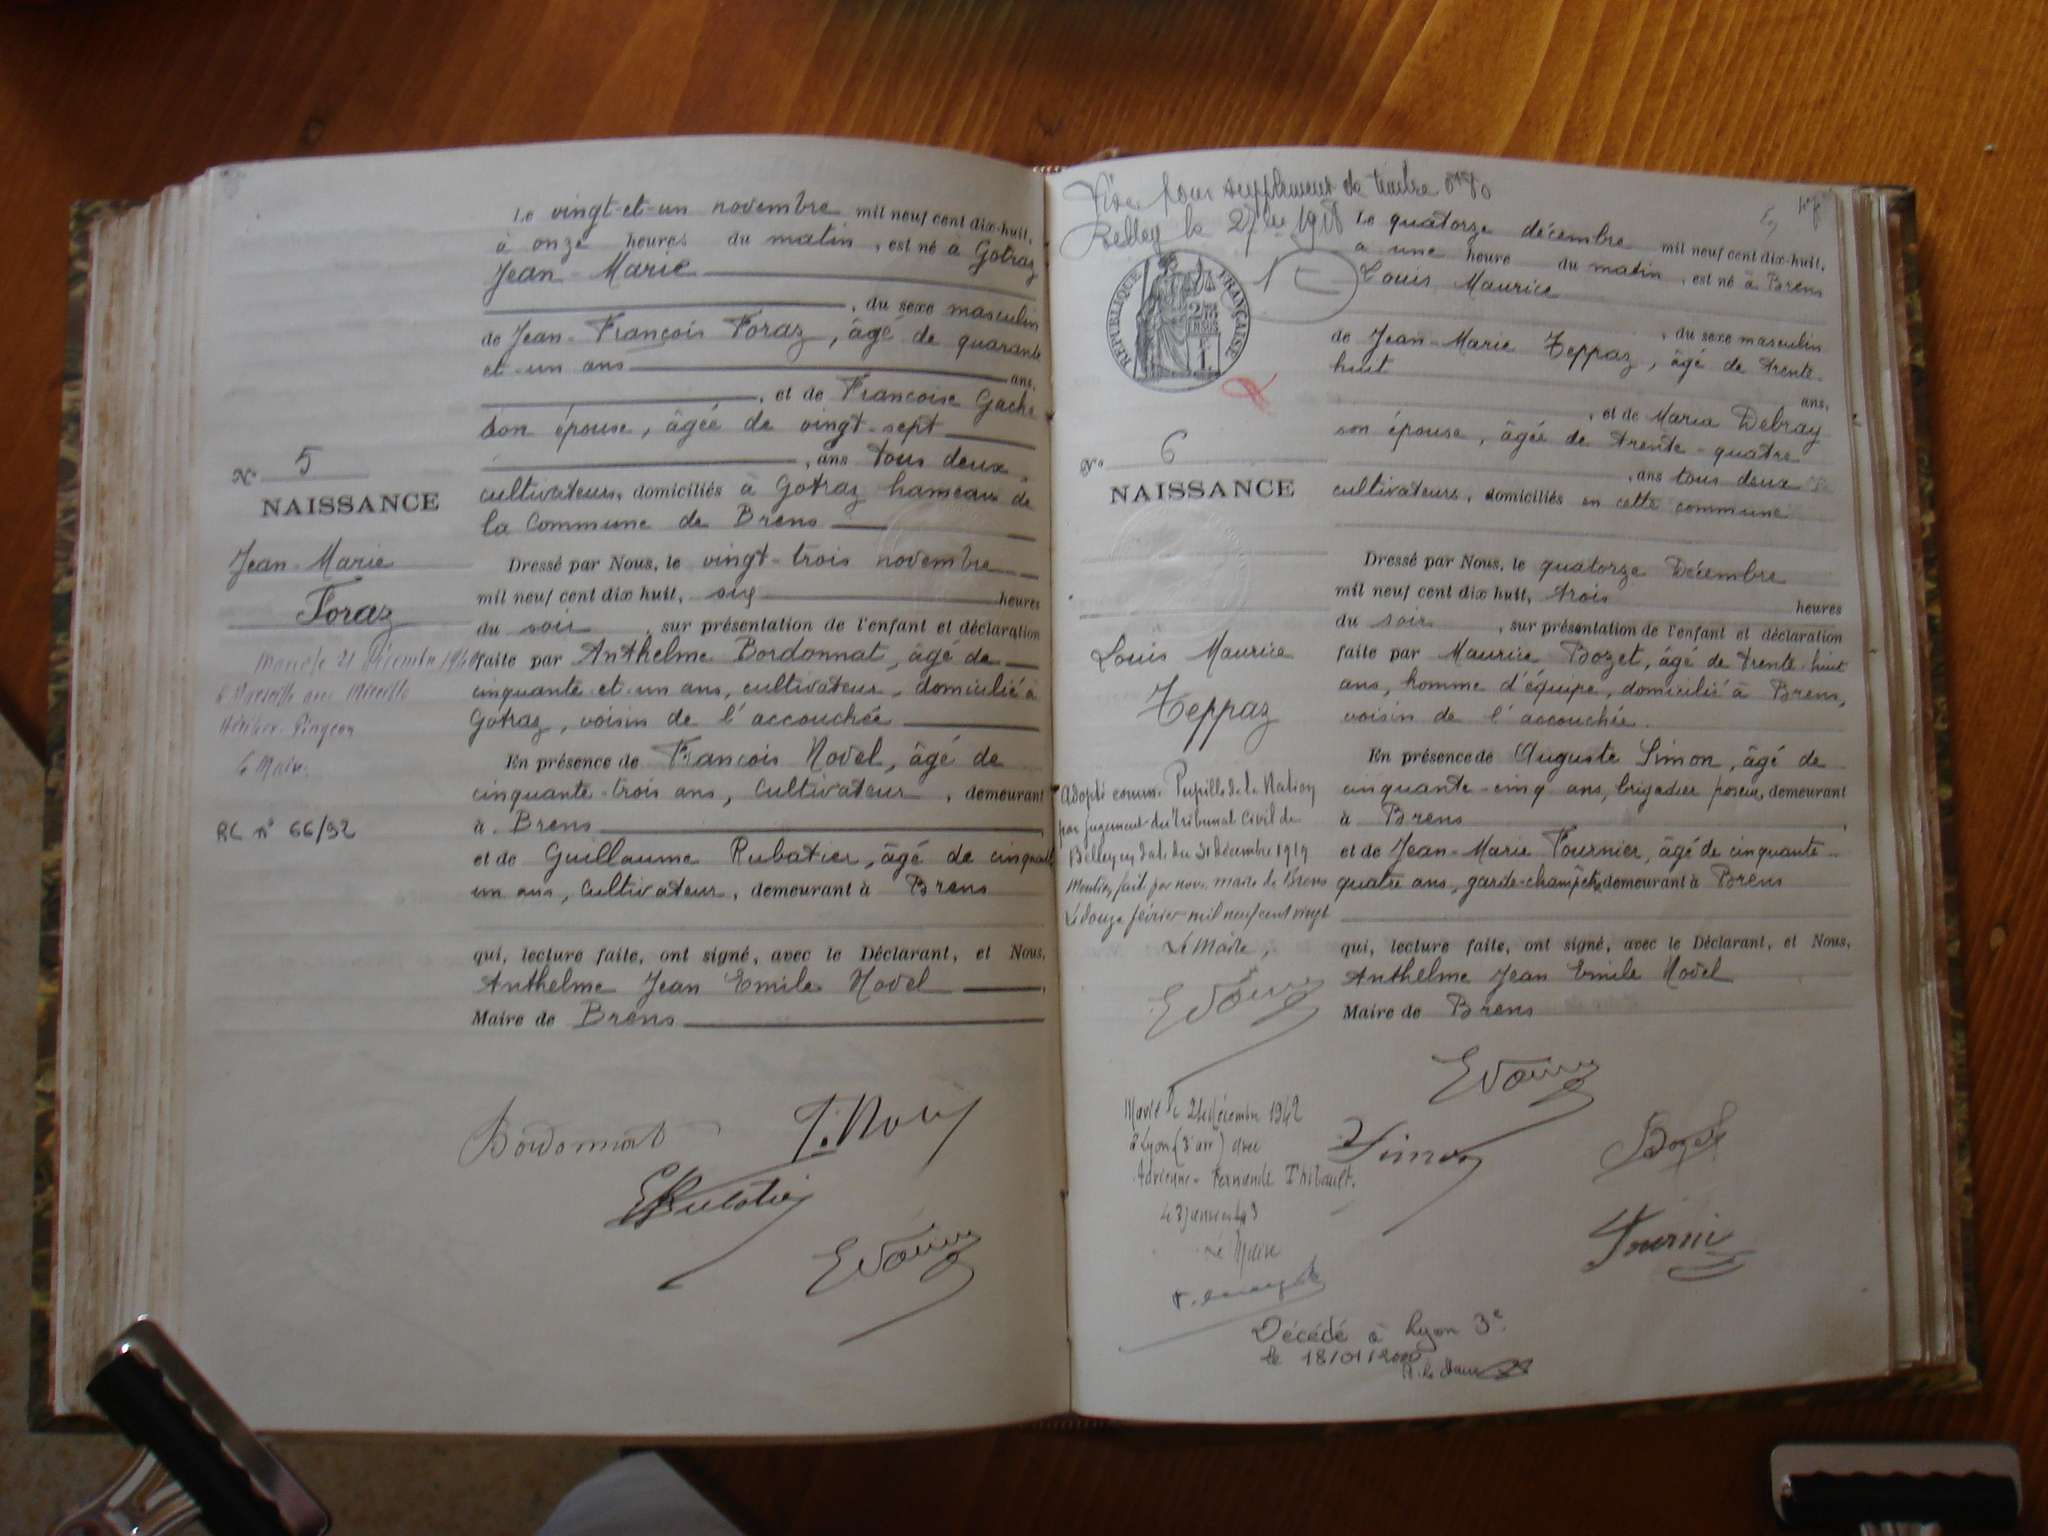 Le vingt-et-un novembre mil neuf cent dix-huit,
à onze heures du matin, est né à Gotraz
Jean-Marie
, du sexe masculin
de Jean-François Foraz, âgé de quarante
et-un ans ans,
, et de Françoise Gache
son épouse, âgée de vingt-sept
, ans tous deux
cultivateurs, domiciliés à Gotraz hameau de
la Commune de Brens
N° 5
NAISSANCE
Jean-Marie
Foraz
Dressé par Nous, le vingt-trois novembre
mil neuf cent dix huit, six heures
du soir, sur présentation de l'enfant et déclaration
faite par Anthelme Bordonnat, âgé de
cinquante-et-un ans, cultivateur, domicilié à
Gotraz, voisin de l'accouchée
En présence de François Novel, âgé de
cinquante-trois ans, cultivateur, demeurant
à Brens
et de Guillaume Rubatier, âgé de cinquante
un ans, cultivateur, demeurant à Brens
qui, lecture faite, ont signé, avec le Déclarant, et Nous,
Anthelme Jean Emile Novel
Maire de Brens
21 décembre 1940
à Marseille avec Mireille
Le Maire
RC n° 66/92
Bordonnat
Rubatier
Visé pour supplément de timbre
Belley le 27 1918
RÉPUBLIQUE FRANÇAISE
Le quatorze décembre mil neuf cent dix-huit,
à une heure du matin, est né à Brens
Louis Maurice
, du sexe masculin
de Jean-Marie Teppaz, âgé de trente-
huit ans,
, et de Maria Debray
son épouse, âgée de trente-quatre
, ans tous deux
cultivateurs, domiciliés en cette commune
N° 6
NAISSANCE
Louis Maurice
Teppaz
Dressé par Nous, le quatorze Décembre
mil neuf cent dix huit, trois heures
du soir, sur présentation de l'enfant et déclaration
faite par Maurice Bozet, âgé de trente-huit
ans, homme d'équipe, domicilié à Brens,
voisin de l'accouchée.
En présence de Auguste Simon, âgé de
cinquante-cinq ans, brigadier poseur, demeurant
à Brens
et de Jean-Marie Fournier, âgé de cinquante-
quatre ans, garde-champêtre, demeurant à Brens
qui, lecture faite, ont signé, avec le Déclarant, et Nous,
Anthelme Jean Emile Novel
Maire de Brens
Adopté comme Pupille de la Nation
par jugement du Tribunal Civil de
Belley en date du 31 décembre 1919
Mention fait par nous maire de Brens
Le douze février mil neuf cent vingt
Le Maire,
Simon
Bozet
Marié le 24 décembre 1942
à Lyon (3e arr) avec
Adrienne-Fernande Thibault.
Le Maire
Décédé à Lyon 3e
le 18/01/2000